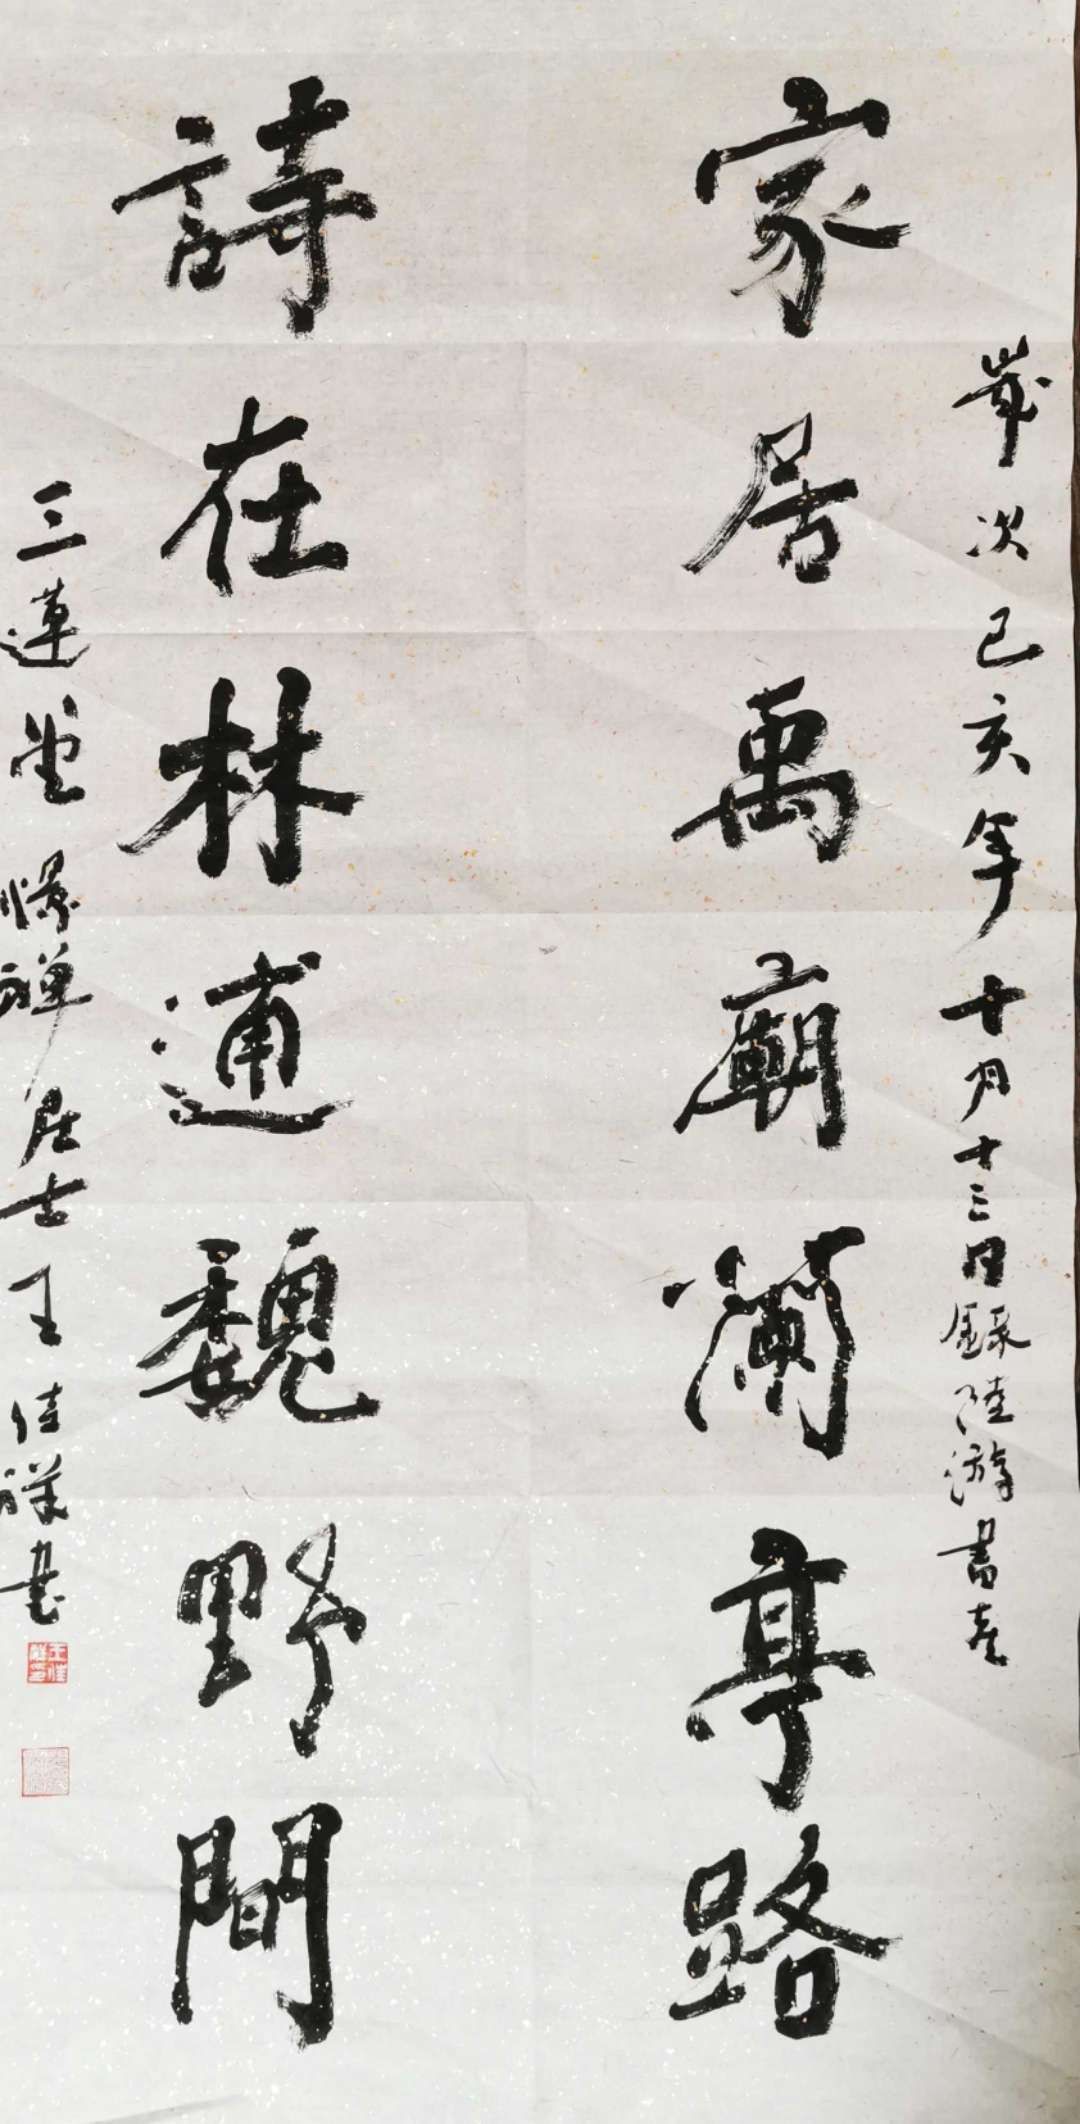 歲次己亥年十月十三日錄陸游書
家居禹廟蘭亭路
詩在林逋魏野間
三蓮堂 禪居士王佳祥書